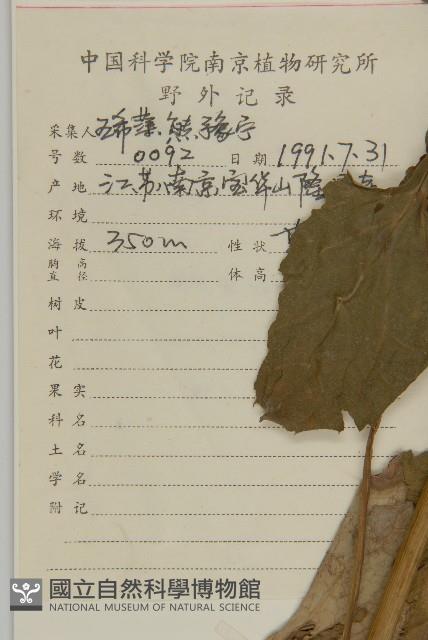 中国科学院南京植物研究所
野外记录
采集人 王希蕖、熊豫宁
号数 0092 日期 1991.7.31
产地 江苏、南京、宝华山隆
环境
海拔 350m 性状
胸高直径 体高
树皮
叶
花
果实
科名
土名
学名
附记
國立自然科學博物館
NATIONAL MUSEUM OF NATURAL SCIENCE